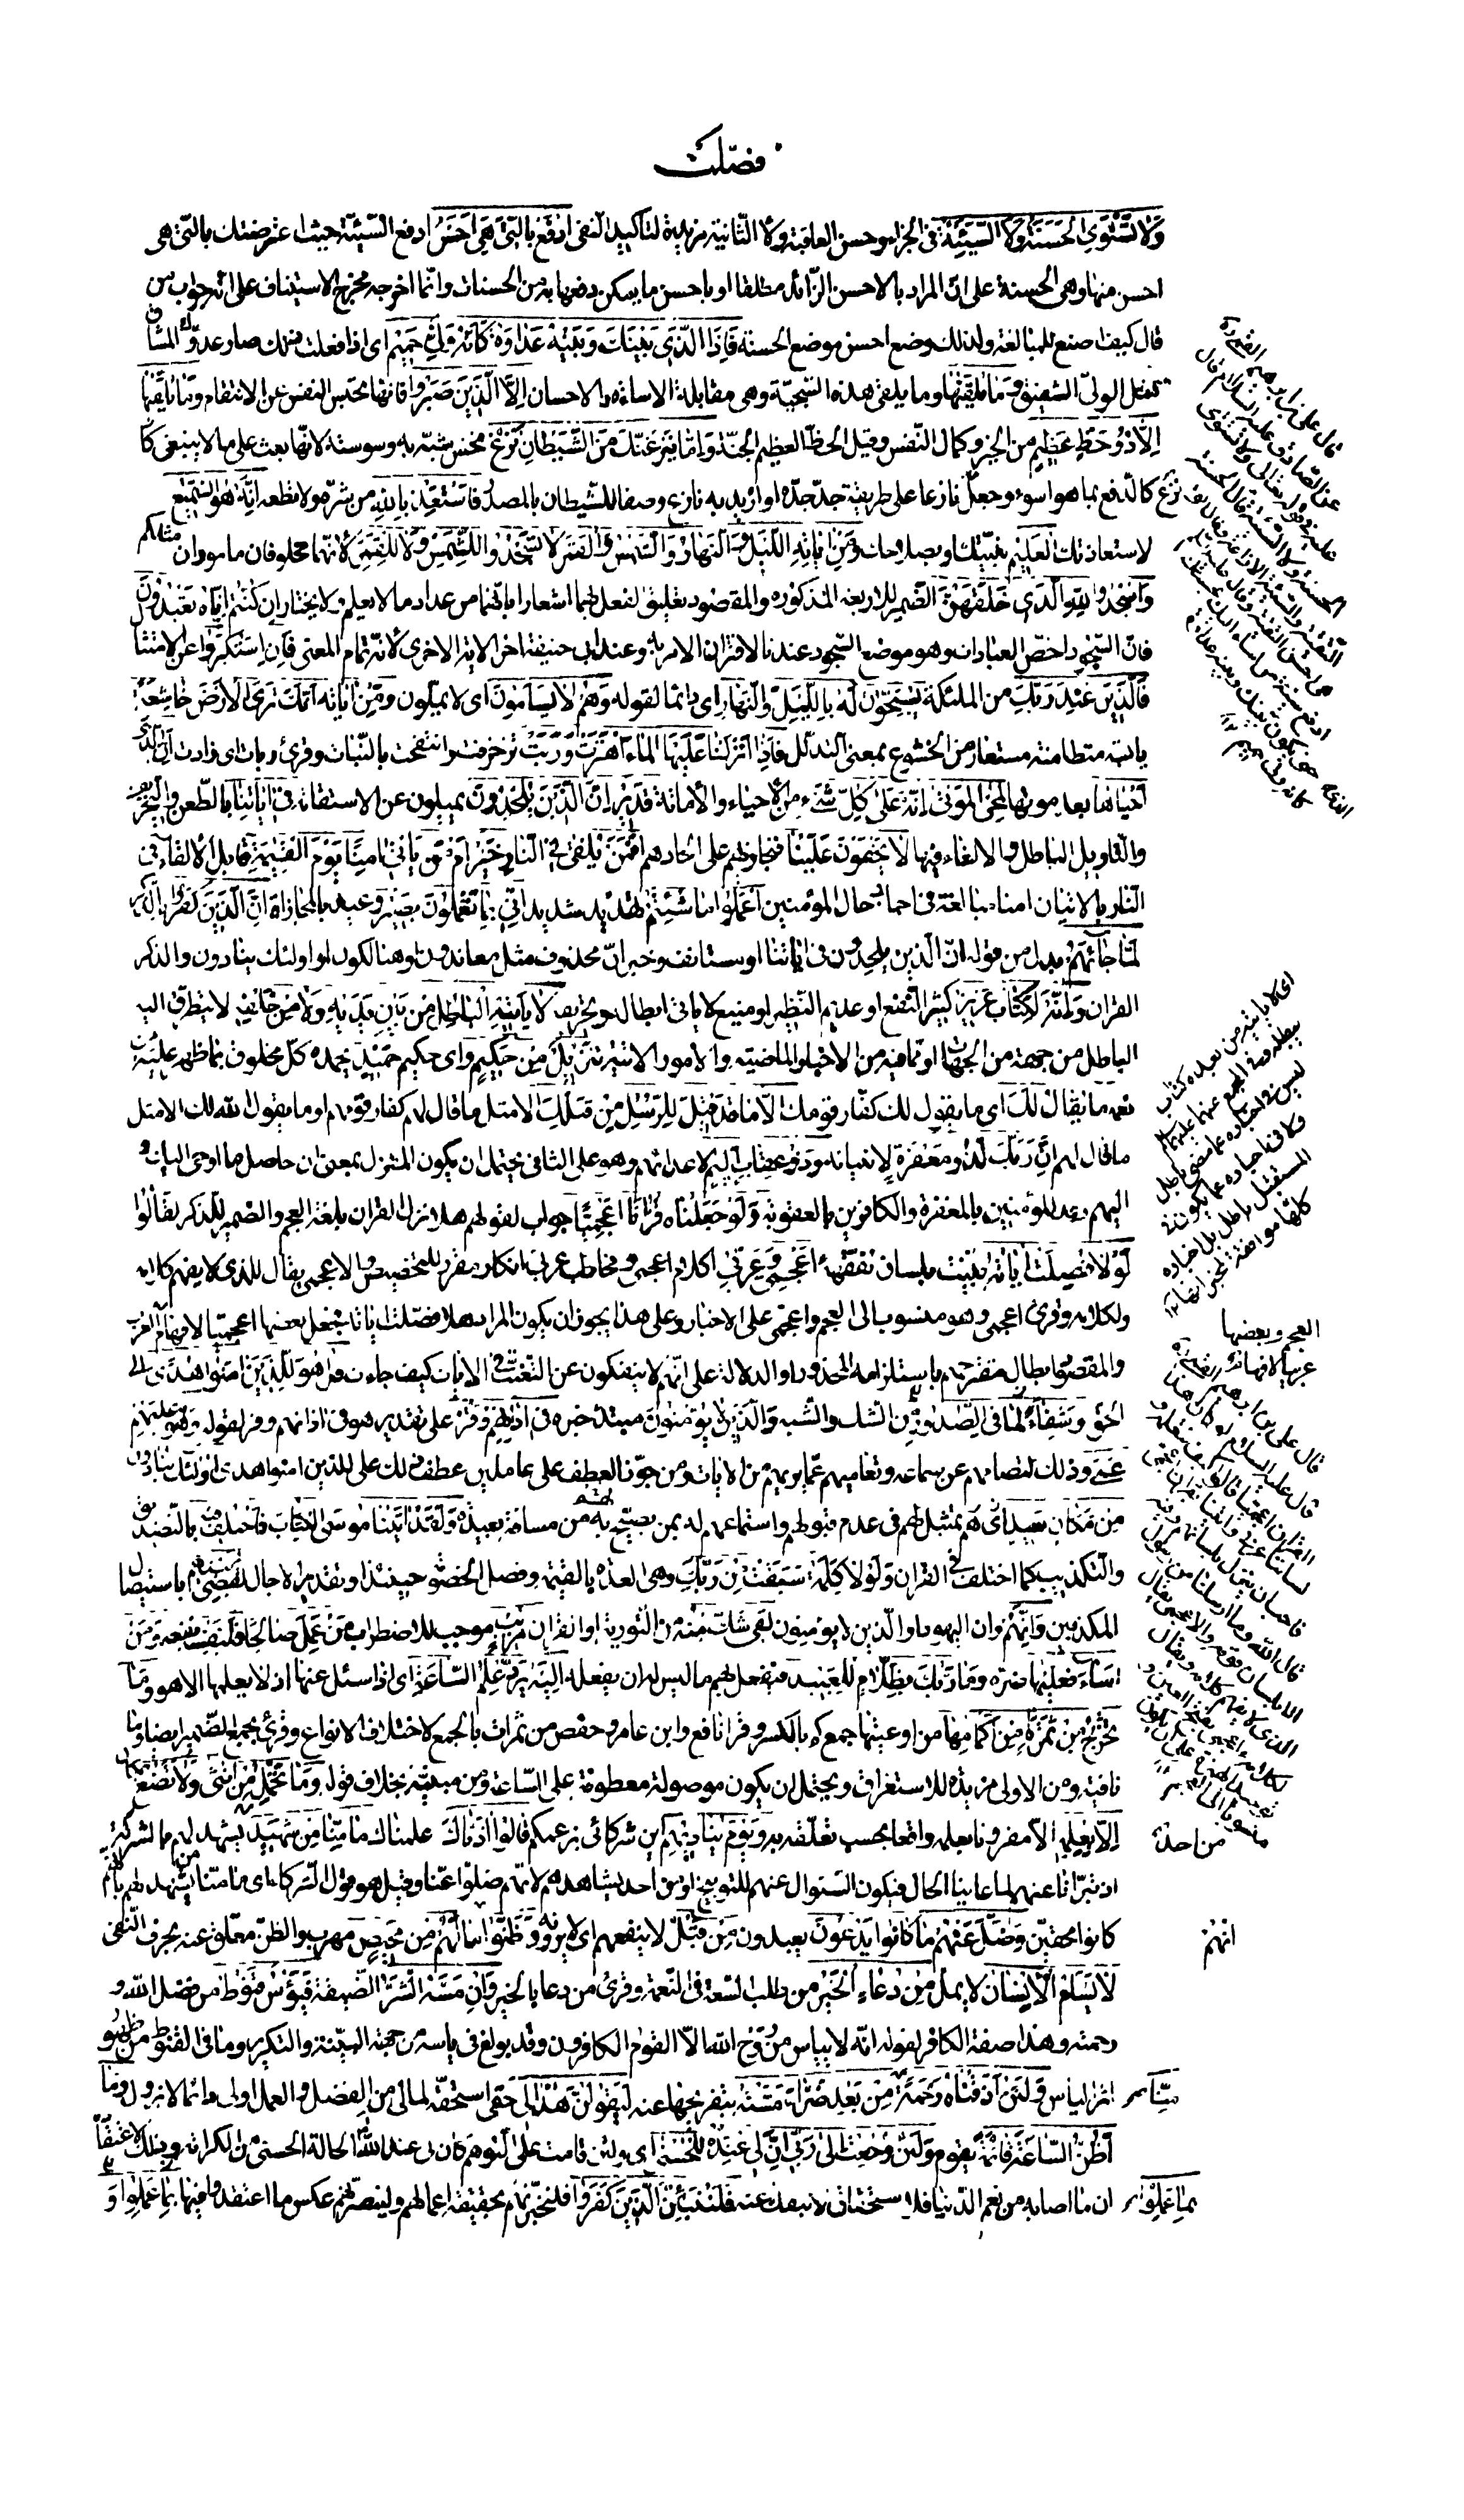 فصّلت
وَلَا تَسْتَوِي الْحَسَنَةُ وَلَا السَّيِّئَةُ في الجزاء وحسن العاقبة ولا الثّانية مزيدة لتأكيد النفى ادْفَعْ بِالَّتِي هِيَ أَحْسَنُ ادفع السّيّئة حيث اعترضتك بالتى هى
احسن منها وهى الحسنة على انّ المراد بالاحسن الزّائد مطلقا او باحسن ما يمكن دفعها به من الحسنات وانّما اخرجه مخرج الاستيناف على انّه جواب من
قال كيف اصنع للمبالغة ولذلك وضع احسن موضع الحسنة فَإِذَا الَّذِي بَيْنَكَ وَبَيْنَهُ عَدَاوَةٌ كَأَنَّهُ وَلِيٌّ حَمِيمٌ اى اذا فعلت ذلك صار عدوّك المشاق
مثل الولىّ الشفيق وَمَا يُلَقَّاهَا وما يلقى هذه السّجيّة وهى مقابلة الاساءة بالاحسان إِلَّا الَّذِينَ صَبَرُوا فانّها تحبس النفس عن الانتقام وَمَا يُلَقَّاهَا
إِلَّا ذُو حَظٍّ عَظِيمٍ من الخير وكمال النّفس وقيل الحظّ العظيم الجنّة وَإِمَّا يَنْزَغَنَّكَ مِنَ الشَّيْطَانِ نَزْغٌ نخس شبّه به وسوسته لانّها بعث على ما لا ينبغى
كالدّفع بما هو اسوء وجعل نازغا على طريقة جدّ جدّه او اريد به نازغ وصفا للشّيطان بالمصدر فَاسْتَعِذْ بِاللَّهِ من شرّه ولا تطعه إِنَّهُ هُوَ السَّمِيعُ
لاستعاذتك الْعَلِيمُ بنيّتك او بصلاحك وَمِنْ آيَاتِهِ اللَّيْلُ وَالنَّهَارُ وَالشَّمْسُ وَالْقَمَرُ لَا تَسْجُدُوا لِلشَّمْسِ وَلَا لِلْقَمَرِ لانّهما مخلوقان ماموران مثلكم
وَاسْجُدُوا لِلَّهِ الَّذِي خَلَقَهُنَّ الضّمير للاربعة المذكورة والمقصود تعليق الفعل بهما اشعارا بانّهما من عداد ما لا يعلم ولا يختار إِنْ كُنْتُمْ إِيَّاهُ تَعْبُدُونَ
فانّ السّجود اخصّ العبادات وهو موضع السّجود عندنا لاقتران الامر به وعند ابى حنيفة اخر الاية الاخرى لانّه تمام المعنى فَإِنِ اسْتَكْبَرُوا عن الامتثال
فَالَّذِينَ عِنْدَ رَبِّكَ من الملئكة يُسَبِّحُونَ لَهُ بِاللَّيْلِ وَالنَّهَارِ اى دائما لقوله وَهُمْ لَا يَسْأَمُونَ اى لا يملّون وَمِنْ آيَاتِهِ أَنَّكَ تَرَى الْأَرْضَ خَاشِعَةً
يابسة متطامنة مستعار من الخشوع بمعنى التذلّل فَإِذَا أَنْزَلْنَا عَلَيْهَا الْمَاءَ اهْتَزَّتْ وَرَبَتْ تزخرفت وانتفخت بالنّبات وقرئ ربات اى زادت إِنَّ الَّذِي
أَحْيَاهَا بعد موتها لَمُحْيِي الْمَوْتَى إِنَّهُ عَلَى كُلِّ شَيْءٍ من الاحياء والاماتة قَدِيرٌ إِنَّ الَّذِينَ يُلْحِدُونَ يميلون عن الاستقامة فِي آيَاتِنَا بالطّعن والتحريف
والتاويل الباطل والالغاء فيها لَا يَخْفَوْنَ عَلَيْنَا فنجازيهم على الحادهم أَفَمَنْ يُلْقَى فِي النَّارِ خَيْرٌ أَمْ مَنْ يَأْتِي آمِنًا يَوْمَ الْقِيَامَةِ قابل الالقاء فى
النار بالاتيان امنا مبالغة فى احماد حال المؤمنين اعْمَلُوا مَا شِئْتُمْ تهديد شديد إِنَّهُ بِمَا تَعْمَلُونَ بَصِيرٌ وعيد بالمجازاة إِنَّ الَّذِينَ كَفَرُوا بِالذِّكْرِ
لَمَّا جَاءَهُمْ بدل من قوله انّ الّذين يلحدون فى اياتنا او مستانف وخبر انّ محذوف مثل معاندون او هالكون او اولئك ينادون والذكر
القران وَإِنَّهُ لَكِتَابٌ عَزِيزٌ كثير النّفع او عديم النّظير او منيع لا يأتى ابطاله وتحريفه لَا يَأْتِيهِ الْبَاطِلُ مِنْ بَيْنِ يَدَيْهِ وَلَا مِنْ خَلْفِهِ لا يتطرّق اليه
الباطل من جهة من الجهات او ممّا فيه من الاخبار الماضية والامور الاتية تَنْزِيلٌ مِنْ حَكِيمٍ واى حكيم حَمِيدٍ يحمده كلّ مخلوق بما ظهر عليه من
نعمه مَا يُقَالُ لَكَ اى ما يقول لك كفّار قومك إِلَّا مَا قَدْ قِيلَ لِلرُّسُلِ مِنْ قَبْلِكَ الّا مثل ما قال لهم كفار قومهم او ما يقول الله لك الا مثل
ما قال لهم إِنَّ رَبَّكَ لَذُو مَغْفِرَةٍ لانبيائه وَذُو عِقَابٍ أَلِيمٍ لاعدائهم وهو على الثانى يحتمل ان يكون المقول بمعنى ان حاصل ما اوحى اليك و
اليهم وعد للمؤمنين بالمغفرة والكافرين بالعقوبة وَلَوْ جَعَلْنَاهُ قُرْآنًا أَعْجَمِيًّا جواب لقولهم هلا نزل القران بلغة العجم والضمير للذكر لَقَالُوا
لَوْلَا فُصِّلَتْ آيَاتُهُ بيّنت بلسان نفقهه أَأَعْجَمِيٌّ وَعَرَبِيٌّ اكلام اعجمى ومخاطب عربى انكار مقرر للتخصيص والاعجمى يقال للذى لا يفهم كلامه
ولكلامه وقرئ اعجمى وهو منسوب الى العجم واعجمى على الاخبار وعلى هذا يجوز ان يكون المراد هلا فصّلت اياته فجعل بعضها اعجميّا لافهام
والمقصود ابطال مقترحهم باستلزامه المحذور او الدلالة على انّهم لا ينفكون عن التّعنّت فى الايات كيف جاءت قُلْ هُوَ لِلَّذِينَ آمَنُوا هُدًى الى
الحق وَشِفَاءٌ لما فى الصّدور من الشك والشبه وَالَّذِينَ لَا يُؤْمِنُونَ مبتدأ خبره فِي آذَانِهِمْ وَقْرٌ على تقدير هو فى اذانهم وقر لقوله وَهُوَ عَلَيْهِمْ
عَمًى وذلك لتصامّهم عن سماعه وتعاميهم عمّا يريهم من الايات ومن جوّز العطف على عاملين عطف ذلك على للذين امنوا هدى أُولَئِكَ يُنَادَوْنَ
مِنْ مَكَانٍ بَعِيدٍ اى هم تمثيل لهم فى عدم قبولهم واستماعهم له بمن يصيّح به من مسافة بعيدة وَلَقَدْ آتَيْنَا مُوسَى الْكِتَابَ فَاخْتُلِفَ فِيهِ بالتّصديق
والتّكذيب كما اختلف فى القران وَلَوْلَا كَلِمَةٌ سَبَقَتْ مِنْ رَبِّكَ وهى العدة بالقيمة وفصل الخصومة حينئذ او تقدير الاجال لَقُضِيَ بَيْنَهُمْ باستيصال
المكذبين وَإِنَّهُمْ وان اليهود او الّذين لا يؤمنون لَفِي شَكٍّ مِنْهُ من التورية او القران مُرِيبٍ موجب للاضطراب مَنْ عَمِلَ صَالِحًا فَلِنَفْسِهِ نفعه وَمَنْ
أَسَاءَ فَعَلَيْهَا ضرّه وَمَا رَبُّكَ بِظَلَّامٍ لِلْعَبِيدِ فيفعل بهم ما ليس له ان يفعله إِلَيْهِ يُرَدُّ عِلْمُ السَّاعَةِ اى اذا سئل عنها اذ لا يعلمها الا هو وَمَا
تَخْرُجُ مِنْ ثَمَرَةٍ مِنْ أَكْمَامِهَا من اوعيتها جمع كم بالكسر وقرأ نافع وابن عامر وحفص من ثمرات بالجمع لاختلاف الانواع وقرئ بجمع الضّمير ايضا وما
نافية ومن الاولى مزيدة للاستغراق ويحتمل ان يكون موصولة معطوفة على السّاعة ومن مبيّنة بخلاف قوله وَمَا تَحْمِلُ مِنْ أُنْثَى وَلَا تَضَعُ بمكان
إِلَّا بِعِلْمِهِ الّا مقرونا بعلمه واقعا بحسب تعلّقه به وَيَوْمَ يُنَادِيهِمْ أَيْنَ شُرَكَائِي بزعمكم قَالُوا آذَنَّاكَ اعلمناك مَا مِنَّا مِنْ شَهِيدٍ يشهد لهم بالشركة
اذ تبرّانا عنهم لما عاينا الحال فيكون السّؤال عنهم للتوبيخ او من احد يشاهدهم لانّهم ضلّوا عنّا وقيل هو قول الشركاء اى ما منّا من يشهد لهم بانّهم
كانوا محقّين وَضَلَّ عَنْهُمْ مَا كَانُوا يَدْعُونَ يعبدون مِنْ قَبْلُ لا ينفعهم او لا يرونه وَظَنُّوا مَا لَهُمْ مِنْ مَحِيصٍ مهرب والظنّ معلّق عنه بحرف النّفى
لَا يَسْأَمُ الْإِنْسَانُ لا يملّ مِنْ دُعَاءِ الْخَيْرِ من طلب السّعة فى النّعمة وقرئ من دعاء بالخير وَإِنْ مَسَّهُ الشَّرُّ الضّيقة فَيَئُوسٌ قَنُوطٌ من فضل الله و
رحمته وهذا صفة الكافر لقوله انّه لا ييأس من روح الله الّا القوم الكافرون وقد بولغ فى يأسه من جهة البنية والتكرير وما فى القنوط من ظهور
اثر الياس وَلَئِنْ أَذَقْنَاهُ رَحْمَةً مِنَّا مِنْ بَعْدِ ضَرَّاءَ مَسَّتْهُ بتفريجها عنه لَيَقُولَنَّ هَذَا لِي حقى استحقّه لمالى من الفضل والعمل او لى دائما لا يزول وَمَا
أَظُنُّ السَّاعَةَ قَائِمَةً تقوم وَلَئِنْ رُجِعْتُ إِلَى رَبِّي إِنَّ لِي عِنْدَهُ لَلْحُسْنَى اى ولئن قامت على التوهّم كان لى عند الله الحالة الحسنى من الكرامة وذلك لاعتقاده
ان ما اصابه من نعم الدّنيا فلاستحقاق لا ينفك عنه فَلَنُنَبِّئَنَّ الَّذِينَ كَفَرُوا فلنخبرنّهم بِمَا عَمِلُوا بحقيقة اعمالهم ولنبصرنّهم عكس ما اعتقدوا فيها
اى لا ياتيه من بعده كتاب
يبطله وفى المجمع عنهما عليهما السلام
ليس فى اخباره عما مضى باطل
ولا فى اخباره عما يكون فى
المستقبل باطل بل اخباره
كلها موافقة لمخبراتها
العجم وبعضها
عربيا لافهام
من احد
انهم
منّا
بما عملوا